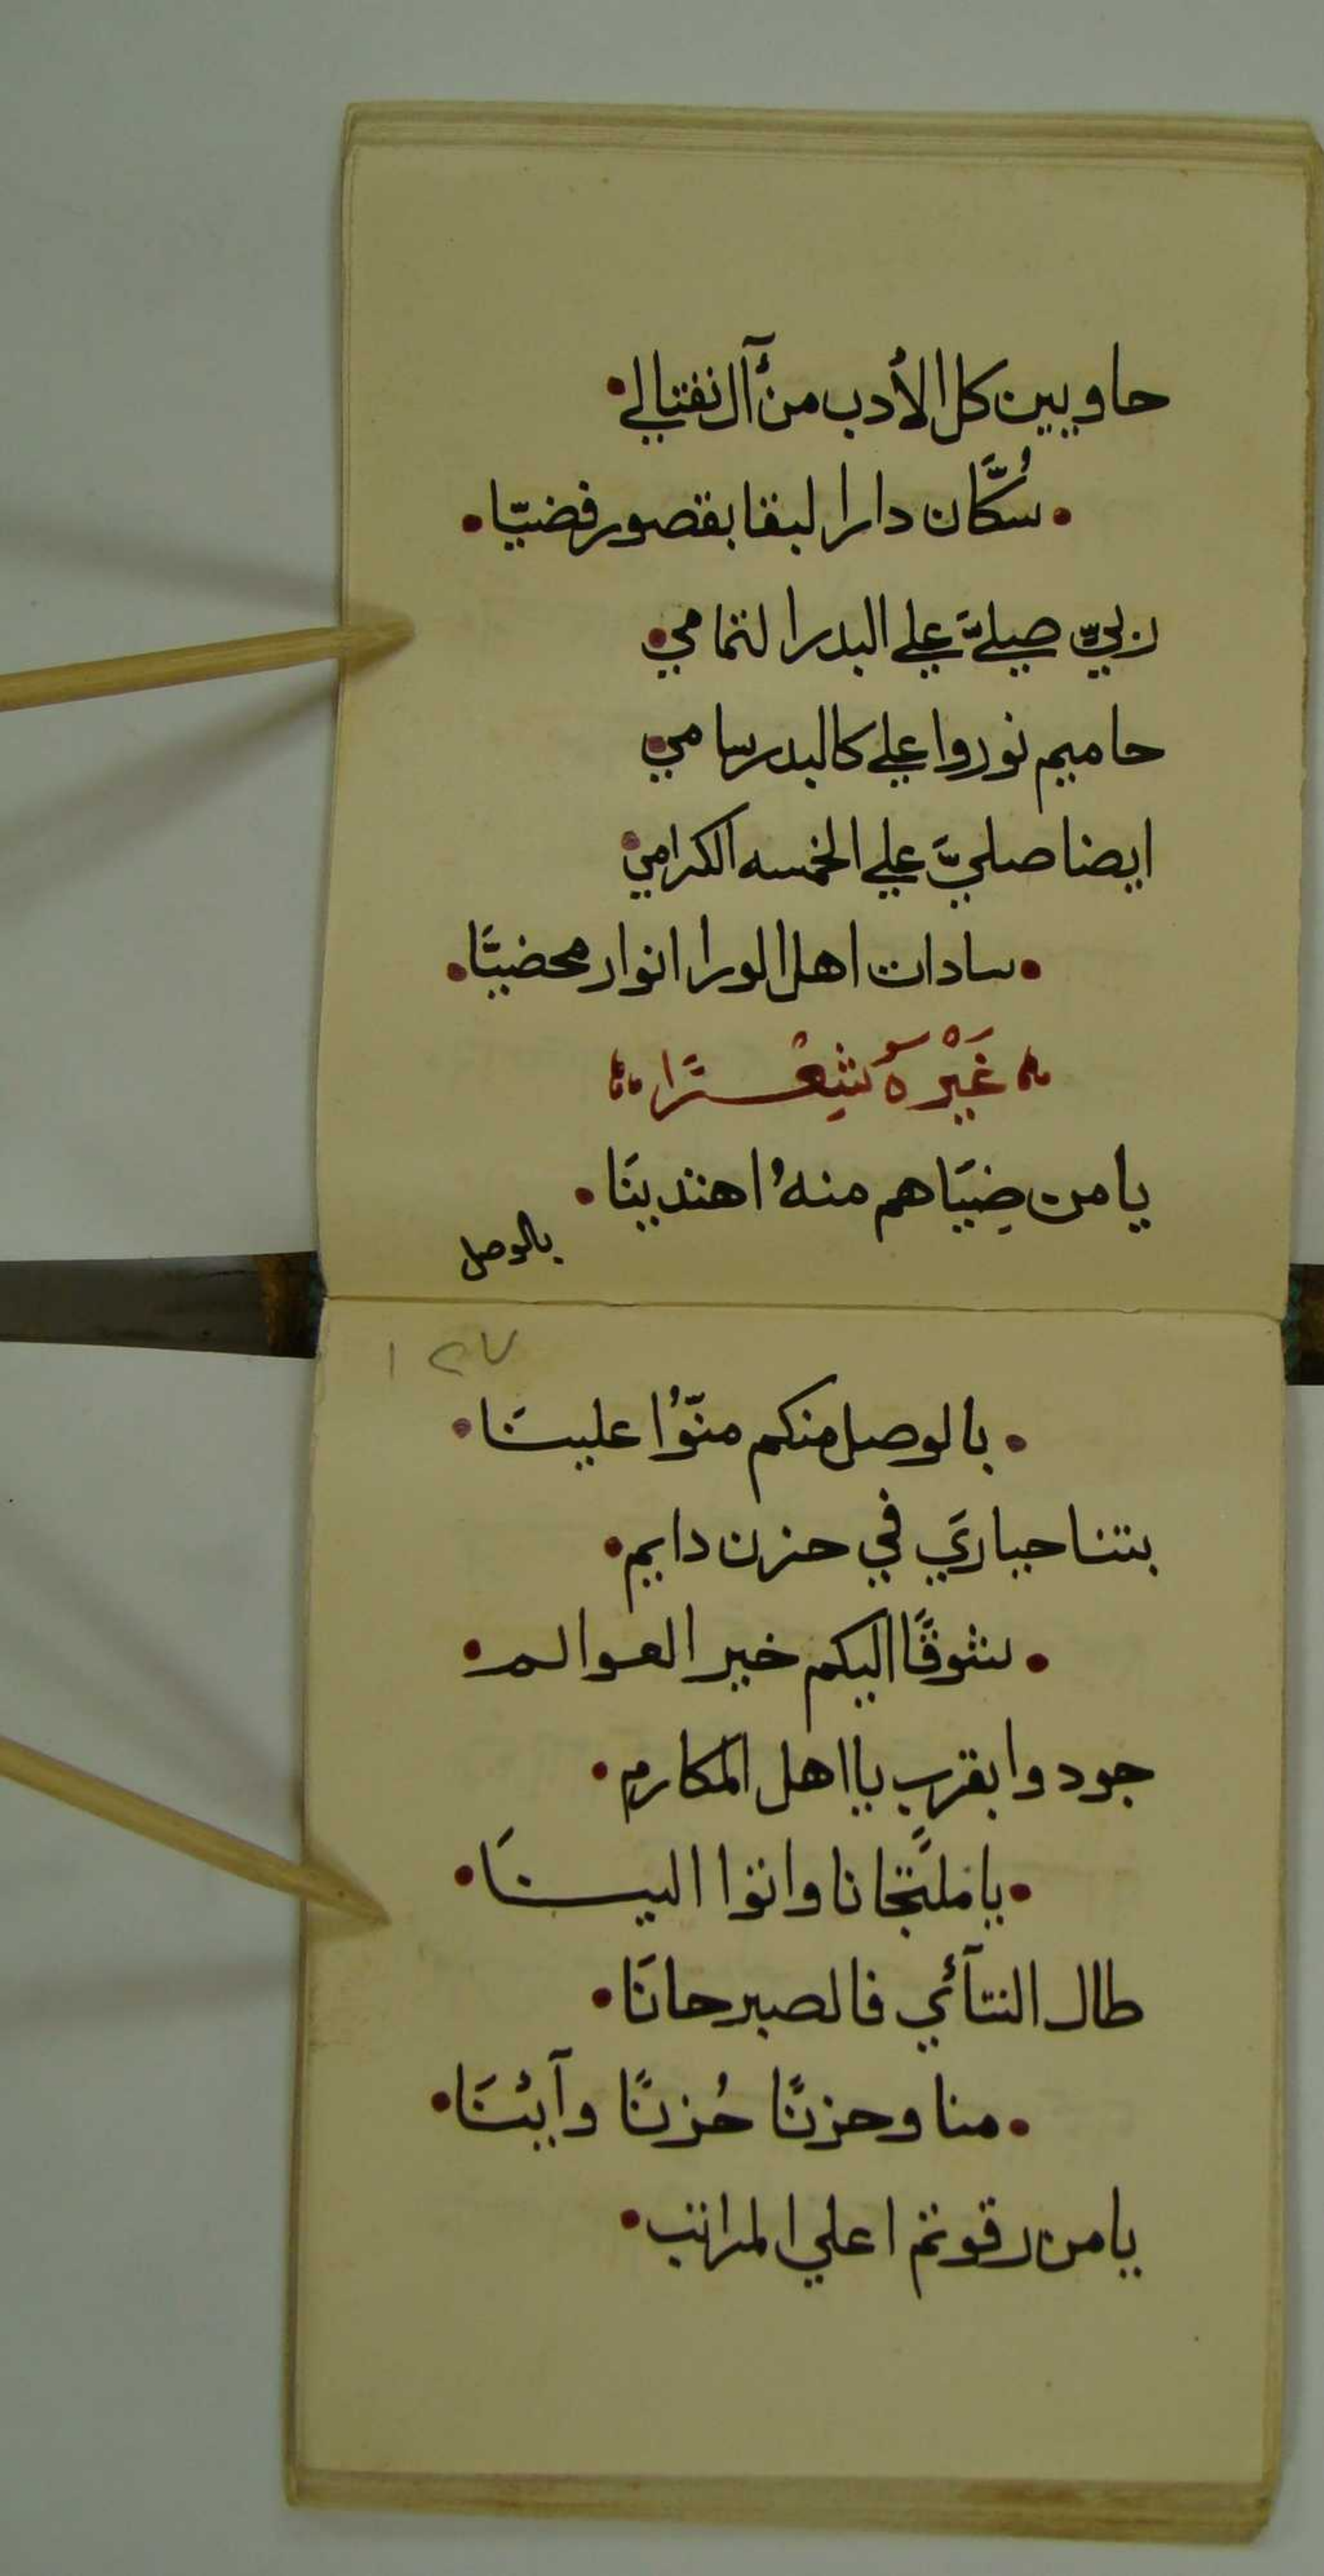 حاويين كل الأدب من آل نفتالي
سُكَّان دار البقا بقصور فضيّا
ربيّ صيليَّ علي البدر التمامي
حاميم نوروا علي كالبدر سامي
ايضا صليَّ علي الخمسه الكرامي
سادات اهل الورا انوار محضيَّا
غَيْرَهُ شِعْرًا
يا من ضِيَاهم منهُ اهتدينَا
بالوصل
١٢٧
بالوصل منكم منّوُا علينَا
بتنا حياريَ في حزن دايم
شوقًا اليكم خير العوالم
جودوا بقرب يا اهل المكارم
يا مَلتجانا واتوا الينَا
طال التنآئي فالصبر حانَا
منا وحزنًا حُزنًا وآئنَا
يا من رقوتم اعلي المراتب